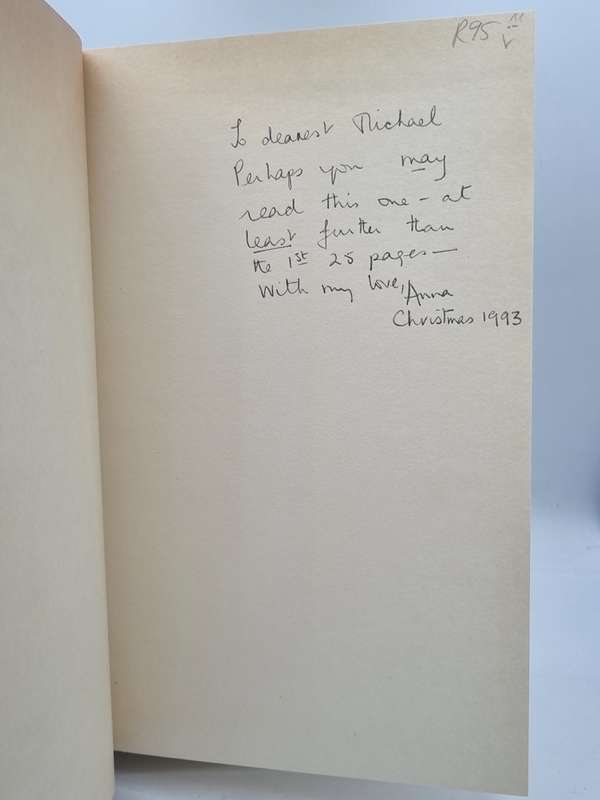 R95
To dearest Michael
Perhaps you may
read this one - at
least further than
the 1st 25 pages—
With my love, Anna
Christmas 1993